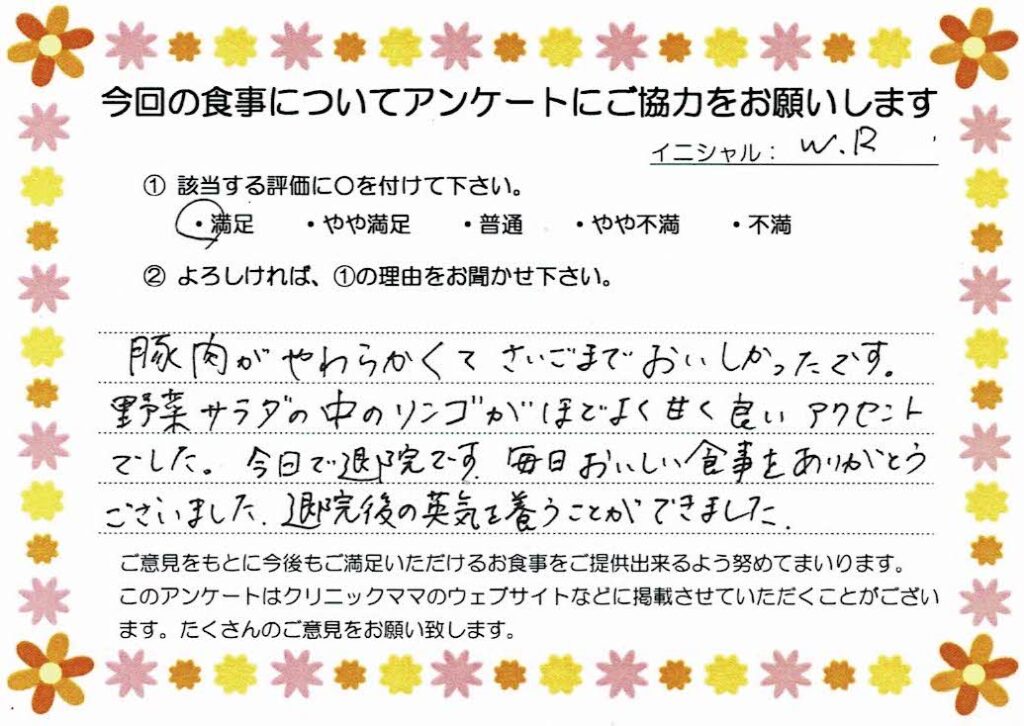 今回の食事についてアンケートにご協力をお願いします
イニシャル： W.R
① 該当する評価に〇を付けて下さい。
・満足 ・やや満足 ・普通 ・やや不満 ・不満
② よろしければ、①の理由をお聞かせ下さい。
豚肉がやわらかくてさいごまでおいしかったです。
野菜サラダの中のリンゴがほどよく甘く良いアクセント
でした。今日で退院です。毎日おいしい食事をありがとう
ございました。退院後の英気を養うことができました。
ご意見をもとに今後もご満足いただけるお食事をご提供出来るよう努めてまいります。
このアンケートはクリニックママのウェブサイトなどに掲載させていただくことがござい
ます。たくさんのご意見をお願い致します。